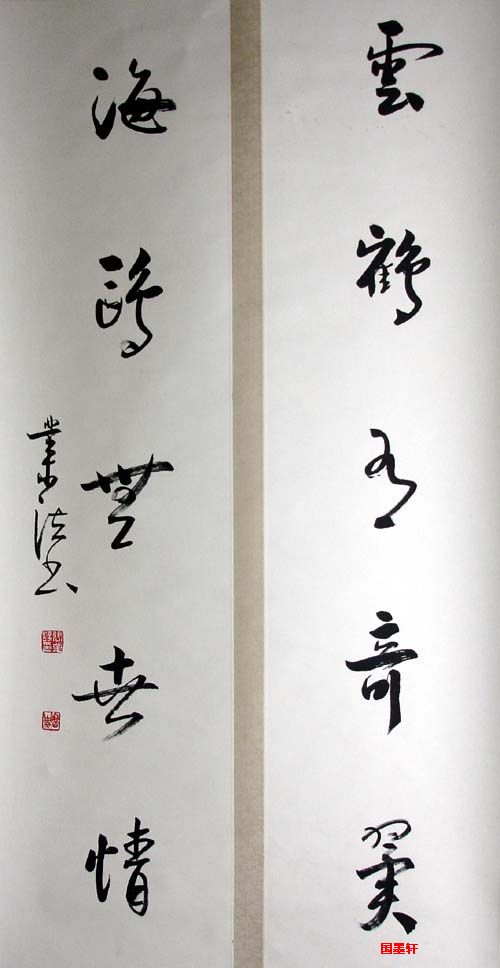 雲鶴有奇翼
海鷗無世情
業法书
国墨轩